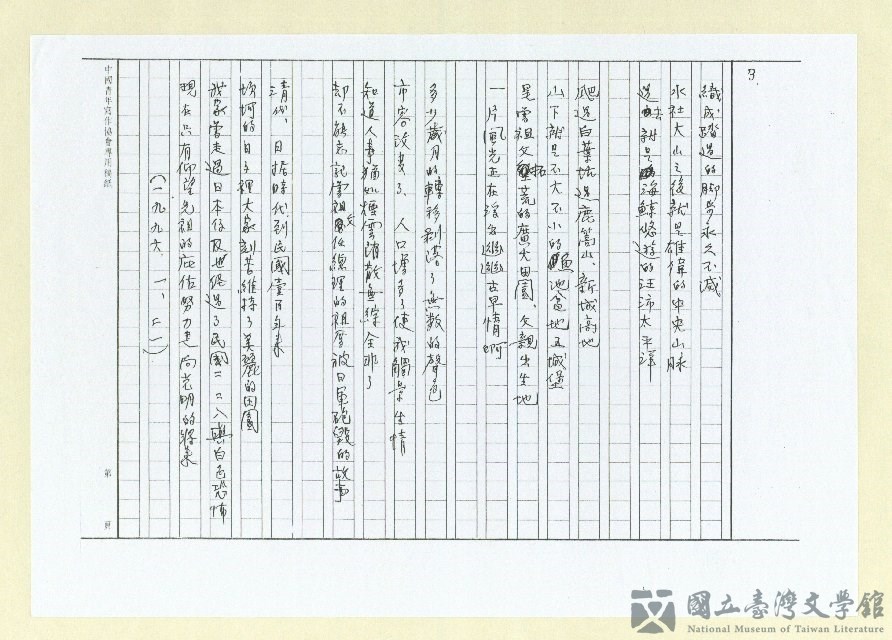 3.
織成踏過的腳步永久不滅
水社大山之後就是雄偉的中央山脈
過去就是海鯨悠遊的汪沛太平洋
爬過白葉坑過鹿篙山、新城高地
山下就是不大不小的魚池盆地五城堡
是曾祖父拓荒的廣大田園、父親出生地
一片風光正在洋名遊遊古早情啊
多少歲月的轉移剝落了無數的聲色
市容改變了、人口增多了使我觸景生情
知道人事猶如煙雲消散無綜全非了
却不能忘記當祖父任總理的祖厝被日軍砲毀的故事
清代、日據時代到民國壹百年來
坎坷的日子裡大家刻苦維持了美麗的田園
我家曾走過日本侵及世經過了民國二二八與白色恐怖
現在只有仰望先祖的庇佑努力走向光明的將來
(一九九六、一、二一)
中國青年寫作協會專用稿紙
第 頁
國立臺灣文學館
National Museum of Taiwan Literature